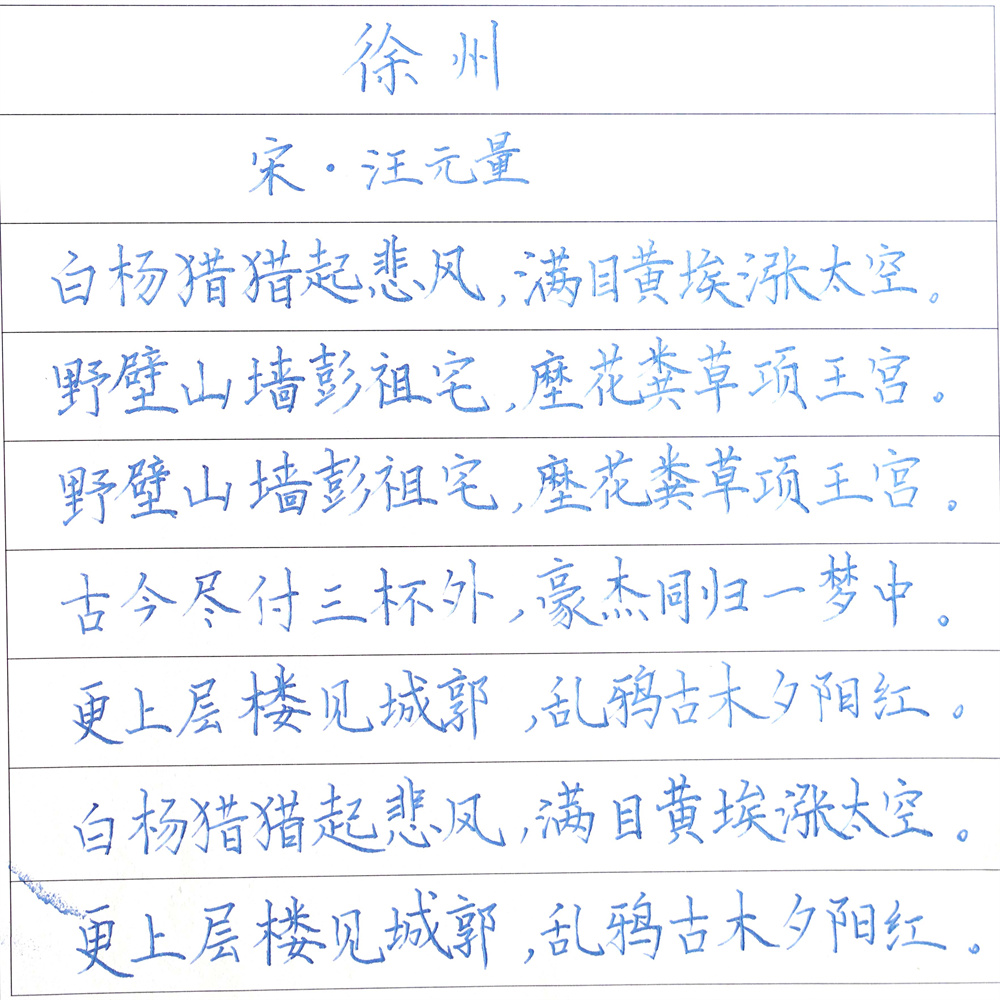 徐州
宋·汪元量
白杨猎猎起悲风,满目黄埃涨太空。
野壁山墙彭祖宅,塺花粪草项王宫。
野壁山墙彭祖宅,塺花粪草项王宫。
古今尽付三杯外,豪杰同归一梦中。
更上层楼见城郭,乱鸦古木夕阳红。
白杨猎猎起悲风,满目黄埃涨太空。
更上层楼见城郭,乱鸦古木夕阳红。